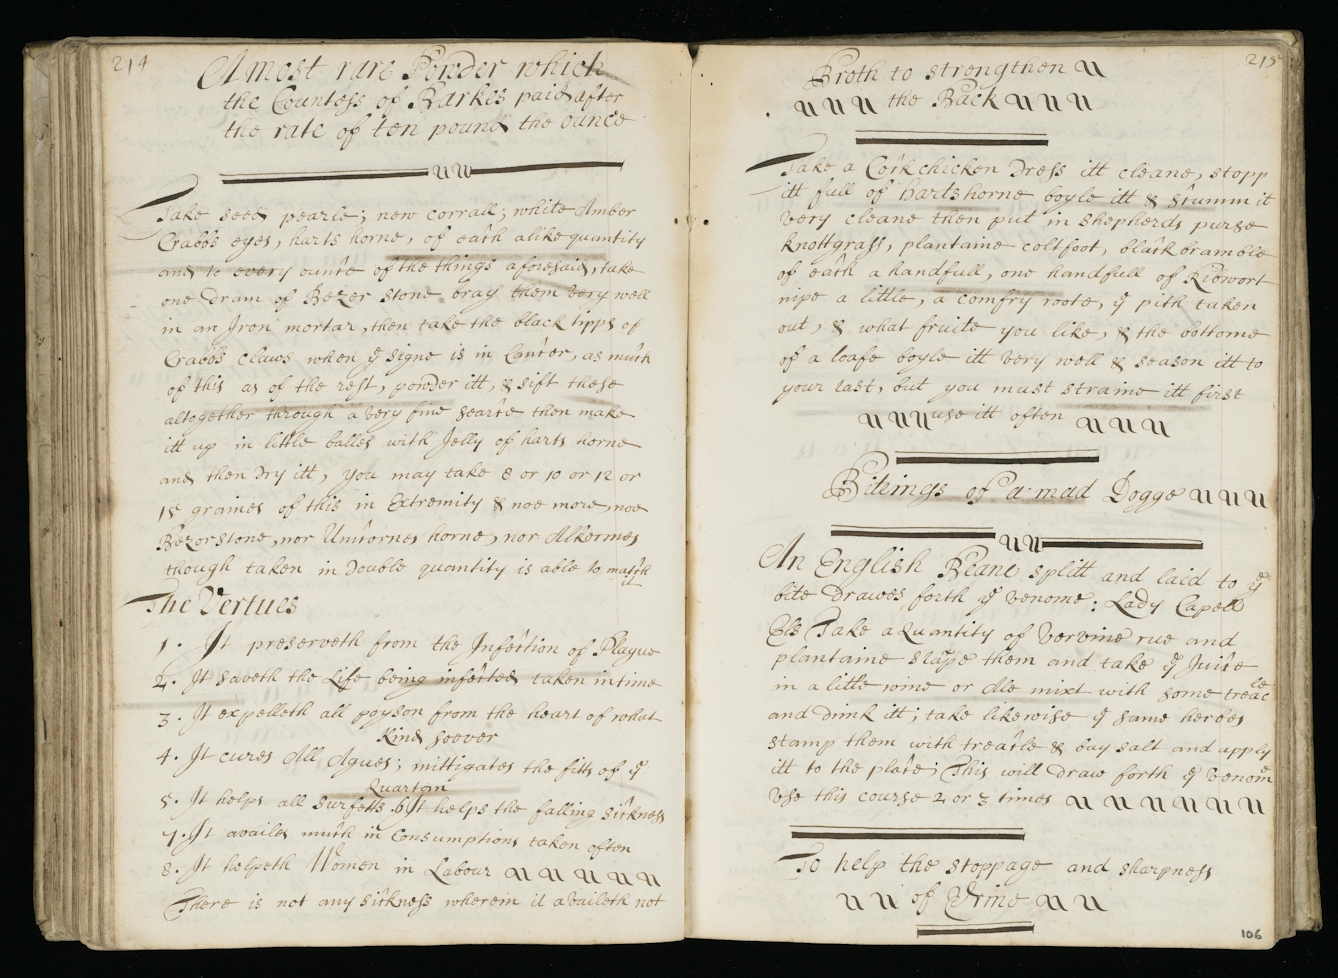 214
A most rare Powder which
the Countess of Barkes paid after
the rate of ten pound the ounce
Take seed pearle; new corrall; white Amber
Crabbs eyes, harts horne, of each alike quantity
and to every ounce of the things aforesaid, take
one dram of Bezer stone bray them very well
in an Iron mortar, then take the black tipps of
Crabbs claws when ye signe is in Cancer, as much
of this as of the rest, powder itt, & sift these
altogether through a very fine searce then make
itt up in little balles with Jelly of harts horne
and then dry itt, you may take 8 or 10 or 12 or
15 graines of this in Extremity & noe more, noe
Bezorstone, nor Unicornes horne, nor Alkermes
though taken in double quantity is able to match
it
The Vertues
1. It preserveth from the Infection of Plague
2. It saveth the Life being infected taken in time
3. It expelleth all poyson from the heart of what
kind soever
4. It cures All Agues; mittigates the fitts of ye
Quartan
5. It helps all surfetts 6 It helps the falling sickness
7. It availes much in Consumptions taken often
8. It helpeth Women in Labour
There is not any sickness wherein it availeth not
215
Broth to strengthen
the Back
Take a Cock chicken Dress itt cleane, stopp
itt full of hartshorne boyle itt & scumm it
very cleane then put in shepherds purse
knottgrass, plantaine coltfoot, black bramble
of each a handfull, one handfull of Ribwort
nipe a little, a comfry roote, ye pith taken
out, & what fruite you like, & the bottome
of a loafe boyle itt very well & season itt to
your tast, but you must straine itt first
use itt often
Bitings of a mad Dogge
An English Beane splitt and laid to ye
bite drawes forth ye venome: Lady Capell
Els Take a Quantity of Vervine rue and
plantaine stape them and take ye Juice
in a little wine or Ale mixt with some treacle
and drink itt; take likewise ye same herbes
stamp them with treacle & bay salt and apply
itt to the place; This will draw forth ye venome
use this course 2 or 3 times
To help the stoppage and sharpness
of Urine
106